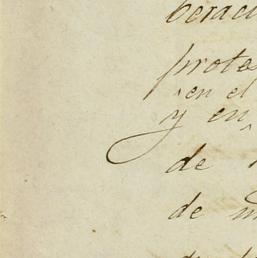 beraci
prote
en el
y en
de
de m